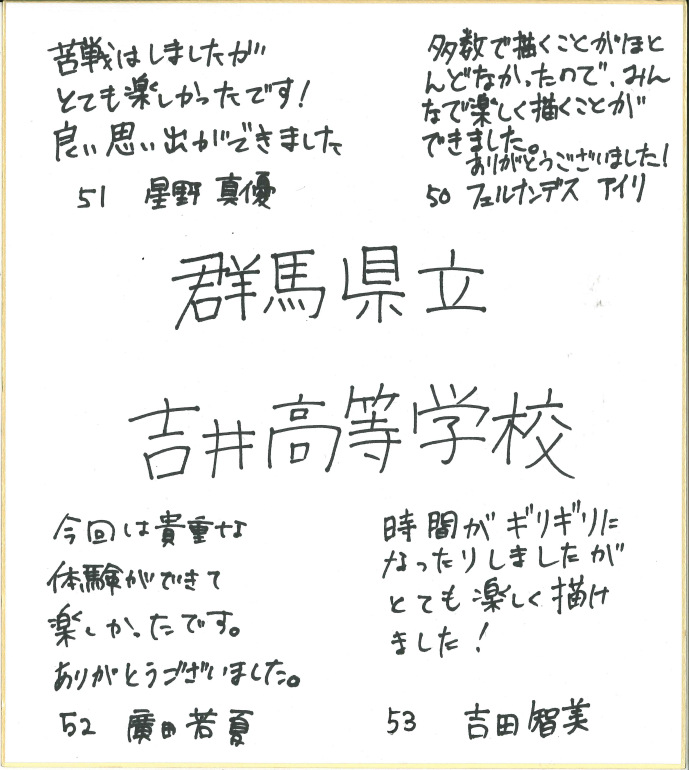 苦戦はしましたが
とても楽しかったです!
良い思い出ができました
51 星野 真優
多数で描くことがほと
んどなかったので、みん
なで楽しく描くことが
できました。
ありがとうございました!
50 フェルナンデス アイリ
群馬県立
吉井高等学校
今回は貴重な
体験ができて
楽しかったです。
ありがとうございました。
52 廣田若夏
時間がギリギリに
なったりしましたが
とても楽しく描け
ました!
53 吉田智美